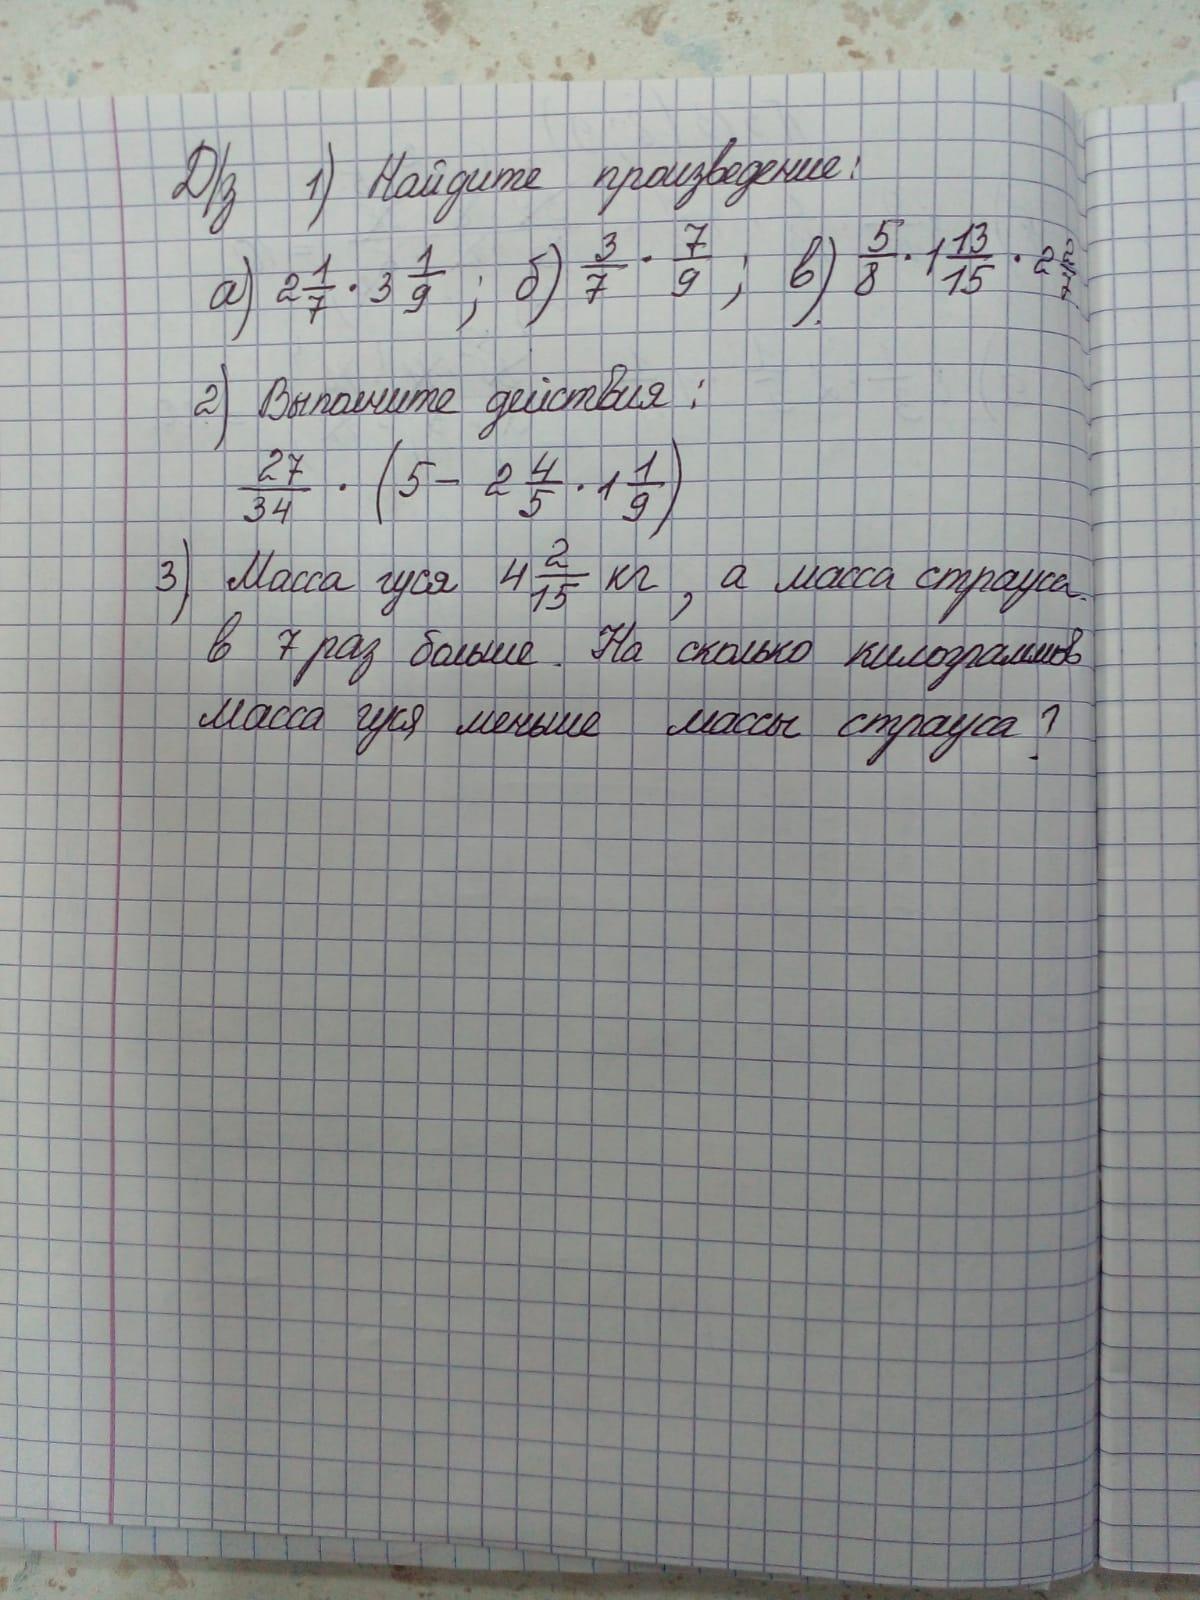 Д/з 1) Найдите произведение:
а) 2 1/7 · 3 1/9 ; б) 3/7 · 7/9 ; в) 5/8 · 1 13/15 · 2
2) Выполните действия:
27/34 · (5 - 2 4/5 · 1 1/9)
3) Масса гуся 4 2/15 кг, а масса страуса
в 7 раз больше. На сколько килограммов
масса гуся меньше массы страуса?